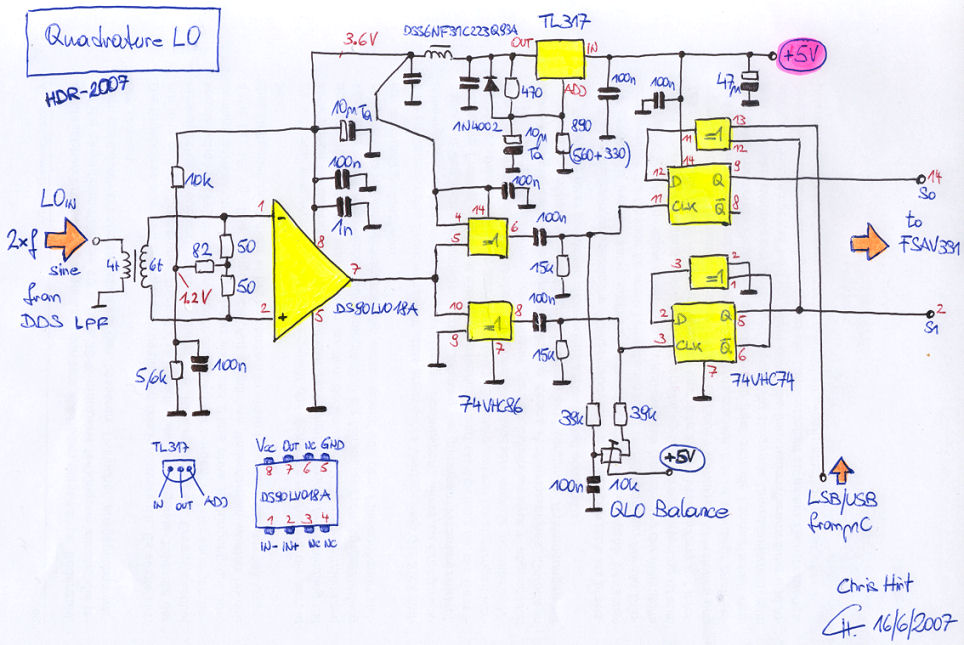 Quadrature LO
HDR-2007
3.6V
TL317
OUT
IN
ADJ
+5V
470
1N4002
10µ
Ta
890
(560+330)
100n
100n
47µ
10µ Ta
100n
1n
10k
LO IN
2xf
sine
from
DDS LPF
4t
6t
82
50
50
1.2V
5,6k
100n
1
2
8
5
7
DS90LV018A
100n
14
4
5
=1
6
100n
15k
10
9
=1
8
7
100n
15k
74VHC86
11
=1
13
12
14
12
D
Q
9
11
CLK
Q
8
3
=1
2
1
2
D
Q
5
3
CLK
Q
6
7
74VHC74
14
S0
to
FSAV331
2
S1
39k
39k
100n
10k
+5V
QLO Balance
LSB/USB
from µC
TL317
IN
OUT
ADJ
Vcc OUT NC GND
8 7 6 5
DS90LV018A
1 2 3 4
IN- IN+ NC NC
Chris Hirt
CH. 16/6/2007